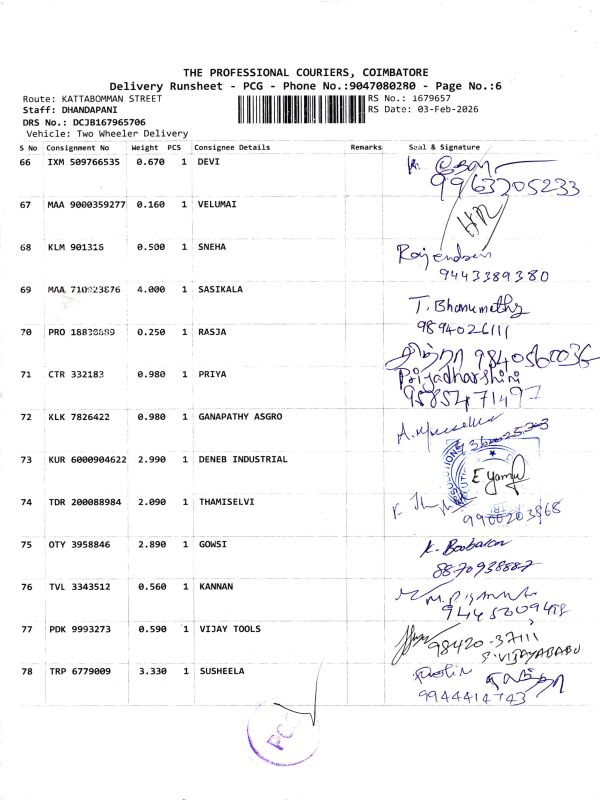 THE PROFESSIONAL COURIERS, COIMBATORE
Delivery Runsheet - PCG - Phone No.:9047080280 - Page No.:6
Route: KATTABOMMAN STREET
RS No.: 1679657
Staff: DHANDAPANI
RS Date: 03-Feb-2026
DRS No.: DCJB167965706
Vehicle: Two Wheeler Delivery
S No Consignment No Weight PCS Consignee Details Remarks Seal & Signature
66 IXM 509766535 0.670 1 DEVI
67 MAA 9000359277 0.160 1 VELUMAI
68 KLM 901316 0.500 1 SNEHA Rajendran
9443389380
69 MAA 710923876 4.000 1 SASIKALA T. Bhanumathy
9894026111
70 PRO 1 0.250 1 RASJA
9840560036
71 CTR 332183 0.980 1 PRIYA Priyadharshini
9585471497
72 KLK 7826422 0.980 1 GANAPATHY ASGRO
73 KUR 6000904622 2.990 1 DENEB INDUSTRIAL
74 TDR 200088984 2.090 1 THAMISELVI
9900203868
75 OTY 3958846 2.890 1 GOWSI K. Boobalan
8870938887
76 TVL 3343512 0.560 1 KANNAN
77 PDK 9993273 0.590 1 VIJAY TOOLS 98420-37111
S.VIJAYABABU
78 TRP 6779009 3.330 1 SUSHEELA
9944414743
PCG